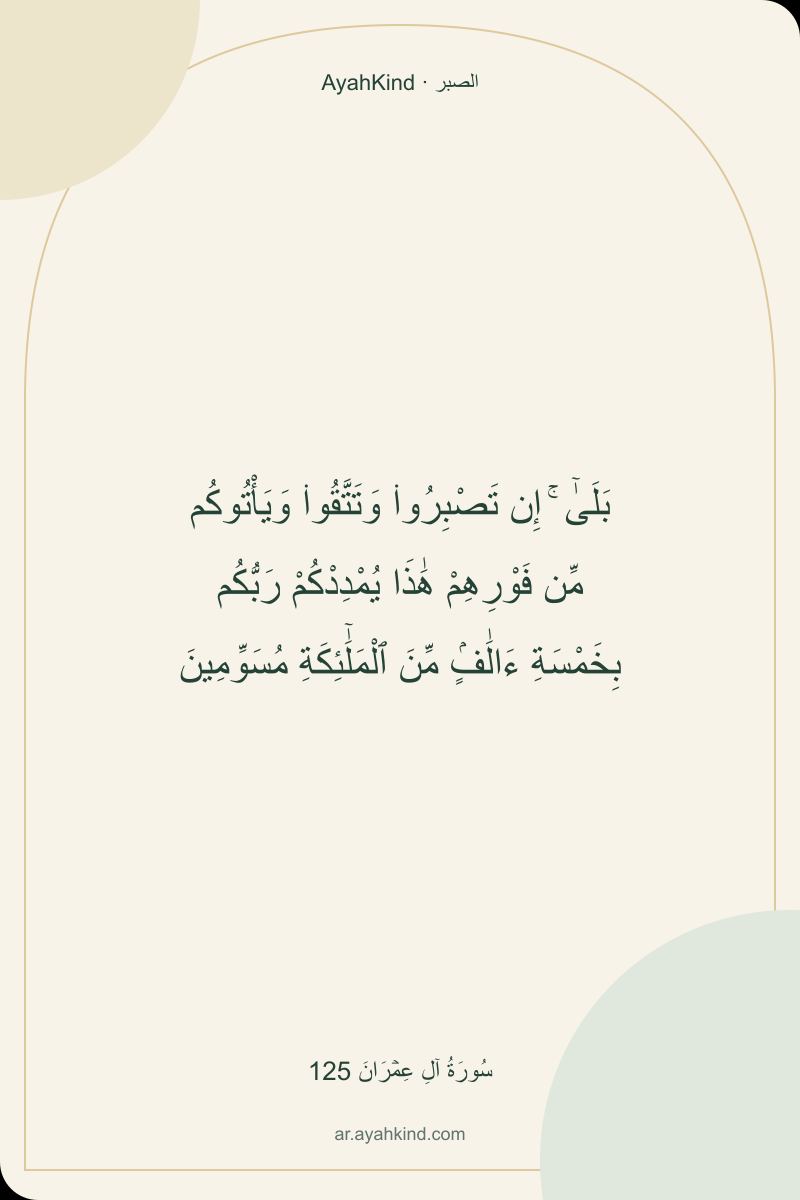 AyahKind · الصبر
بَلَىٰٓ ۚ إِن تَصْبِرُوا۟ وَتَتَّقُوا۟ وَيَأْتُوكُم
مِّن فَوْرِهِمْ هَٰذَا يُمْدِدْكُمْ رَبُّكُم
بِخَمْسَةِ ءَالَٰفٍۢ مِّنَ ٱلْمَلَٰٓئِكَةِ مُسَوِّمِينَ
سُورَةُ آلِ عِمۡرَانَ 125
ar.ayahkind.com